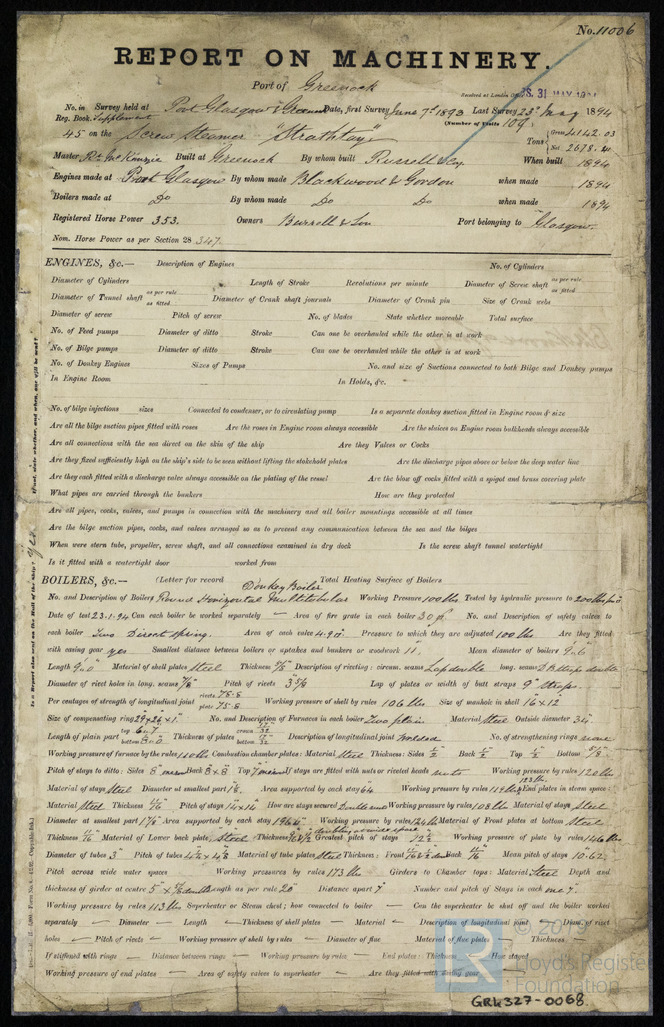 No. 11006
REPORT ON MACHINERY.
Port of Greenock
Received at London Office 31 MAY 1894
No. in Survey held at Port Glasgow & Greenock Date, first Survey June 7th 1893 Last Survey 23rd May 1894
Reg. Book. Supplement (Number of Visits 109)
45 on the Screw Steamer "Strathtay" Tons Gross 4142.03
Net 2678.40
Master R. McKenzie Built at Greenock By whom built Russell & Co. When built 1894
Engines made at Port Glasgow By whom made Blackwood & Gordon when made 1894
Boilers made at Do By whom made Do Do when made 1894
Registered Horse Power 353. Owners Burrell & Son Port belonging to Glasgow.
Nom. Horse Power as per Section 28 347.
ENGINES, &c.— Description of Engines No. of Cylinders
Diameter of Cylinders Length of Stroke Revolutions per minute Diameter of Screw shaft as per rule as fitted
Diameter of Tunnel shaft as per rule as fitted Diameter of Crank shaft journals Diameter of Crank pin Size of Crank webs
Diameter of screw Pitch of screw No. of blades State whether moveable Total surface
No. of Feed pumps Diameter of ditto Stroke Can one be overhauled while the other is at work
No. of Bilge pumps Diameter of ditto Stroke Can one be overhauled while the other is at work
No. of Donkey Engines Sizes of Pumps No. and size of Suctions connected to both Bilge and Donkey pumps
In Engine Room In Holds, &c.
No. of bilge injections sizes Connected to condenser, or to circulating pump Is a separate donkey suction fitted in Engine room & size
Are all the bilge suction pipes fitted with roses Are the roses in Engine room always accessible Are the sluices on Engine room bulkheads always accessible
Are all connections with the sea direct on the skin of the ship Are they Valves or Cocks
Are they fixed sufficiently high on the ship's side to be seen without lifting the stokehold plates Are the discharge pipes above or below the deep water line
Are they each fitted with a discharge valve always accessible on the plating of the vessel Are the blow off cocks fitted with a spigot and brass covering plate
What pipes are carried through the bunkers How are they protected
Are all pipes, cocks, valves, and pumps in connection with the machinery and all boiler mountings accessible at all times
Are the bilge suction pipes, cocks, and valves arranged so as to prevent any communication between the sea and the bilges
When were stern tube, propeller, screw shaft, and all connections examined in dry dock Is the screw shaft tunnel watertight
Is it fitted with a watertight door worked from
BOILERS, &c.— (Letter for record Donkey Boiler Total Heating Surface of Boilers
No. and Description of Boilers Round Horizontal Multitubular Working Pressure 100 lbs Tested by hydraulic pressure to 200 lbs
Date of test 23.1.94 Can each boiler be worked separately — Area of fire grate in each boiler 30 No. and Description of safety valves to
each boiler Two Direct Spring. Area of each valve 4.90 Pressure to which they are adjusted 100 lbs Are they fitted
with easing gear yes Smallest distance between boilers or uptakes and bunkers or woodwork 11" Mean diameter of boilers 9'.6"
Length 9'.0" Material of shell plates Steel Thickness Description of riveting: circum. seams Lap double long. seams D.B. straps double
Diameter of rivet holes in long. seams 7/8" Pitch of rivets Lap of plates or width of butt straps 9" straps
Per centages of strength of longitudinal joint rivets 78.8 plate 75.8 Working pressure of shell by rules 106 lbs Size of manhole in shell 16" x 12"
Size of compensating ring 29 x 26 x 1" No. and Description of Furnaces in each boiler Two plain Material Steel Outside diameter 34"
Length of plain part top bottom Thickness of plates crown bottom Description of longitudinal joint Welded No. of strengthening rings none
Working pressure of furnace by the rules Combustion chamber plates: Material Steel Thickness: Sides 1/2" Back 1/2" Top 1/2" Bottom 5/8"
Pitch of stays to ditto: Sides Back 8 x 8" Top If stays are fitted with nuts or riveted heads nuts Working pressure by rules 120 lbs
Material of stays Steel Diameter at smallest part Area supported by each stay 64 Working pressure by rules End plates in steam space:
Material Steel Thickness Pitch of stays 14 x 14" How are stays secured Double nuts Working pressure by rules 108 lbs Material of stays Steel
Diameter at smallest part Area supported by each stay Working pressure by rules Material of Front plates at bottom Steel
Thickness Material of Lower back plate Steel Thickness Greatest pitch of stays Working pressure of plate by rules 146 lbs
Diameter of tubes 3" Pitch of tubes Material of tube plates Steel Thickness: Front Back Mean pitch of stays 10.62
Pitch across wide water spaces Working pressures by rules 173 lbs Girders to Chamber tops: Material Steel Depth and
thickness of girder at centre Length as per rule 20" Distance apart 7" Number and pitch of Stays in each one 7".
Working pressure by rules 113 lbs Superheater or Steam chest; how connected to boiler — Can the superheater be shut off and the boiler worked
separately — Diameter — Length — Thickness of shell plates — Material — Description of longitudinal joint — Diam. of rivet
holes — Pitch of rivets — Working pressure of shell by rules — Diameter of flue — Material of flue plates — Thickness —
If stiffened with rings — Distance between rings — Working pressure by rules — End plates: Thickness — How stayed
Working pressure of end plates — Area of safety valves to superheater — Are they fitted with easing gear
© 2019
Lloyd's Register
Foundation
GRK327-0068